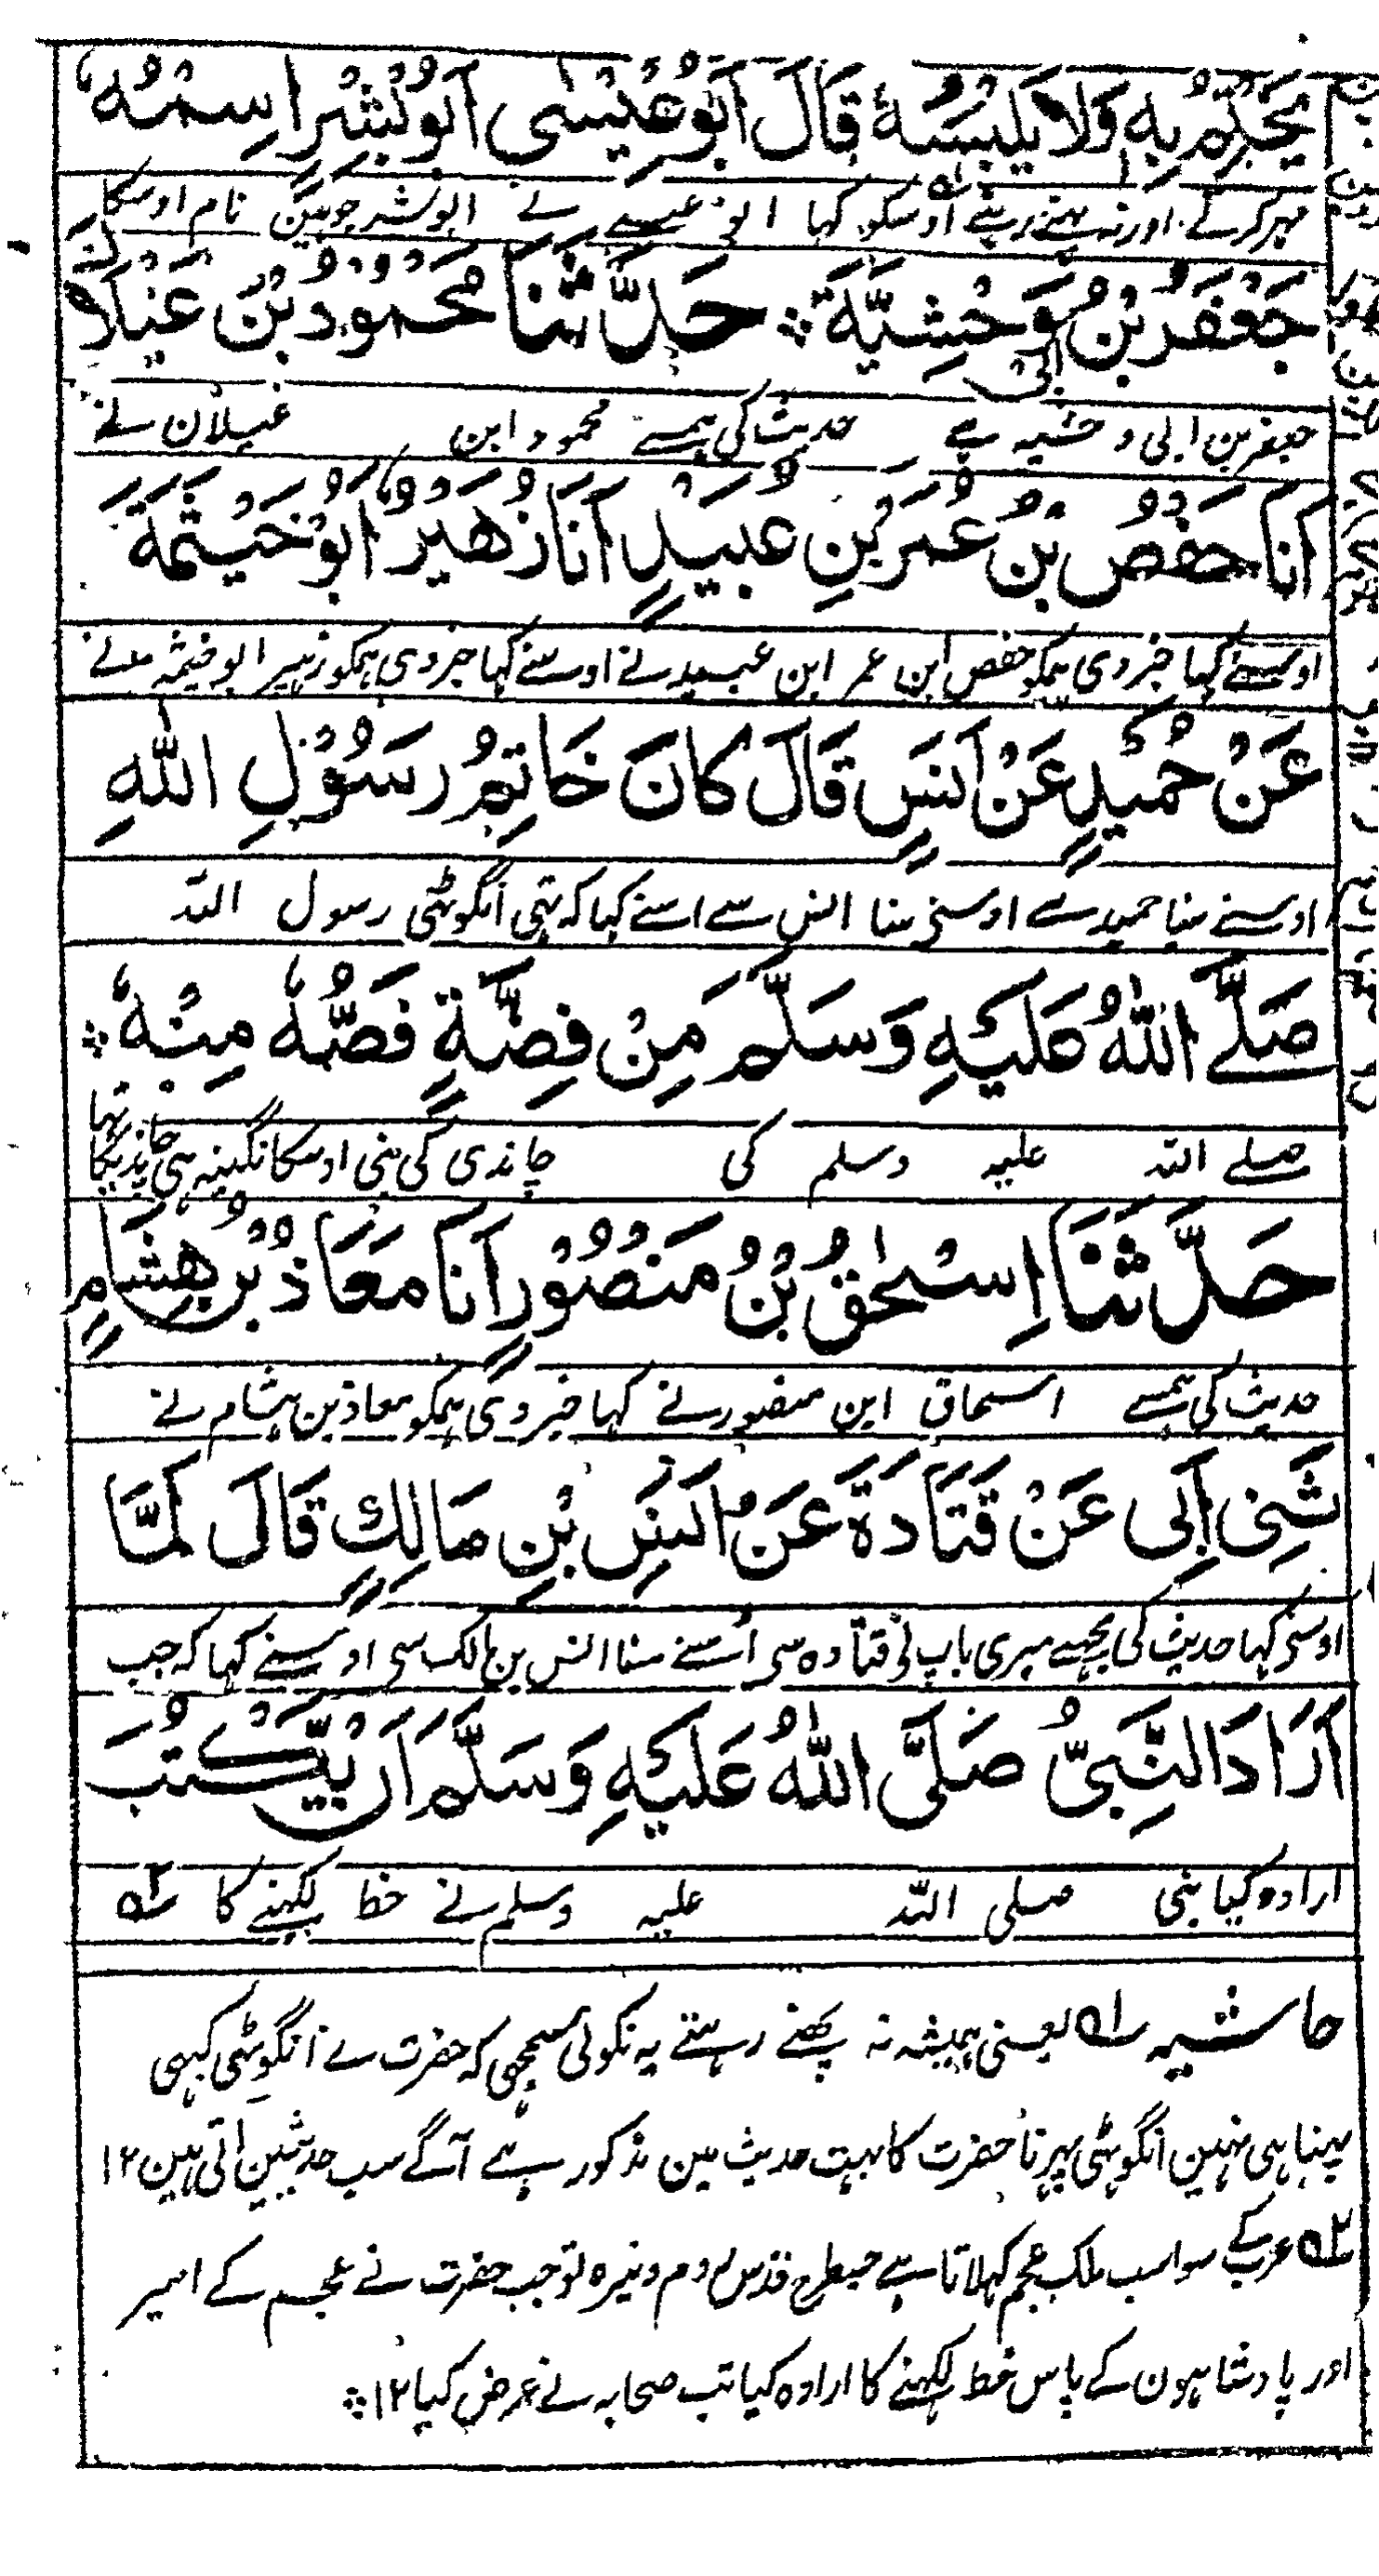 يَخْتِمُ بِهِ وَلَا يَلْبَسُهُ قَالَ اَبُو عِيْسٰى اَبُوْ بِشْرٍ اِسْمُهٗ
مہر کرتے اور نہ پہنے رہتے اوسکو کہا ابو عیسے نے ابو بشر جو ہین نام اوسکا
جَعْفَرُ بْنُ اَبِیْ وَحْشِيَّةَ ۞ حَدَّثَنَا مَحْمُوْدُ بْنُ غَيْلَانَ
جعفر بن ابی وحشیہ ہے حدیث کی ہمسے محمود ابن غیلان نے
اَنَا حَفْصُ بْنُ عُمَرَ بْنِ عُبَيْدٍ اَنَا زُهَيْرٌ اَبُوْ خَيْثَمَةَ
اوسنے کہا خبر دی ہمکو حفص ابن عمر ابن عبید نے اوسنے کہا خبر دی ہمکو زہیر ابو خیثمہ نے
عَنْ حُمَيْدٍ عَنْ اَنَسٍ قَالَ كَانَ خَاتِمُ رَسُوْلِ اللّٰهِ
اوسنے سنا حمید سے اوسنے سنا انس سے اسنے کہا کہ تہی انگوٹھی رسول اللہ
صَلَّے اللّٰهُ عَلَيْهِ وَسَلَّمَ مِنْ فِضَّةٍ فَصُّهٗ مِنْهُ ۞
صلے اللہ علیہ وسلم کی چاندی کی تہی اوسکا نگینہ بہی چاندیکا تہا
حَدَّثَنَا اِسْحٰقُ بْنُ مَنْصُوْرٍ اَنَا مُعَاذُ بْنُ هِشَامٍ
حدیث کی ہمسے اسحاق ابن منصور نے کہا خبر دی ہمکو معاذ بن ہشام نے
ثَنِی اَبِی عَنْ قَتَادَةَ عَنْ اَنَسِ بْنِ مَالِكٍ قَالَ لَمَّا
اوسنے کہا حدیث کی مجہسے میری باپ نے قتادہ سی اُسنے سنا انس بن مالک سی اوسنے کہا کہ جب
اَرَادَ النَّبِیُّ صَلَّی اللّٰهُ عَلَيْهِ وَسَلَّمَ اَنْ يَّكْتُبَ
ارادہ کیا نبی صلی اللہ علیہ وسلم نے خط لکہنے کا ۲؎
حاشیہ ۱؎ یعنی ہمیشہ نہ پہنے رہتے یہ نکوئی سمجھی کہ حضرت نے انگوٹھی کبہی
پہنا ہی نہین انگوٹھی پہرنا حضرت کا بہت حدیث مین مذکور ہے آگے سب حدیثین اتی ہین ۱۲
۲؎ عرب کے سوا سب ملک عجم کہلاتا ہے جیطرح فارس روم وغیرہ تو جب حضرت نے عجم کے امیر
اور پادشاہون کے پاس خط لکہنے کا ارادہ کیا تب صحابہ نے عرض کیا ۱۲ ۞